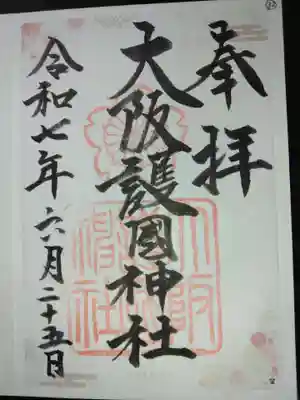 奉拝
大阪護國神社
令和七年六月二十五日